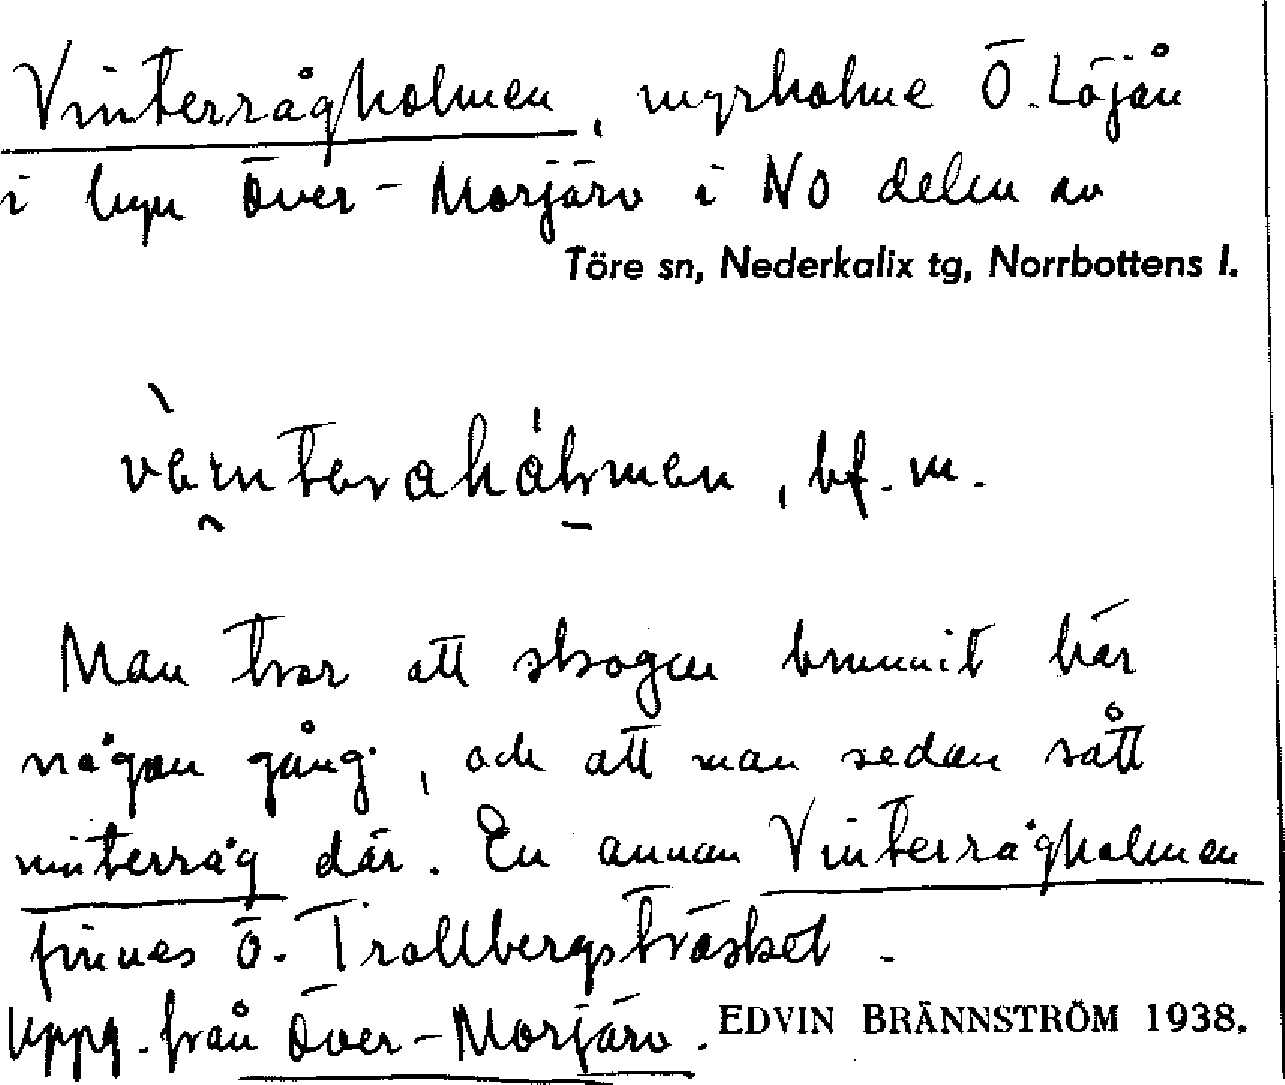 Vinterrågholmen, myrholme Ö. Löjån
i byn Över-Morjärv i NO delen av
Töre sn, Nederkalix tg, Norrbottens l.
, bf. m.
Man tror att skogen brunnit här
någon gång, och att man sedan sått
vinterråg där. En annan Vinterrågholmen
finnes Ö. Trollbergsträsket.
Uppg. från Över-Morjärv. EDVIN BRÄNNSTRÖM 1938.